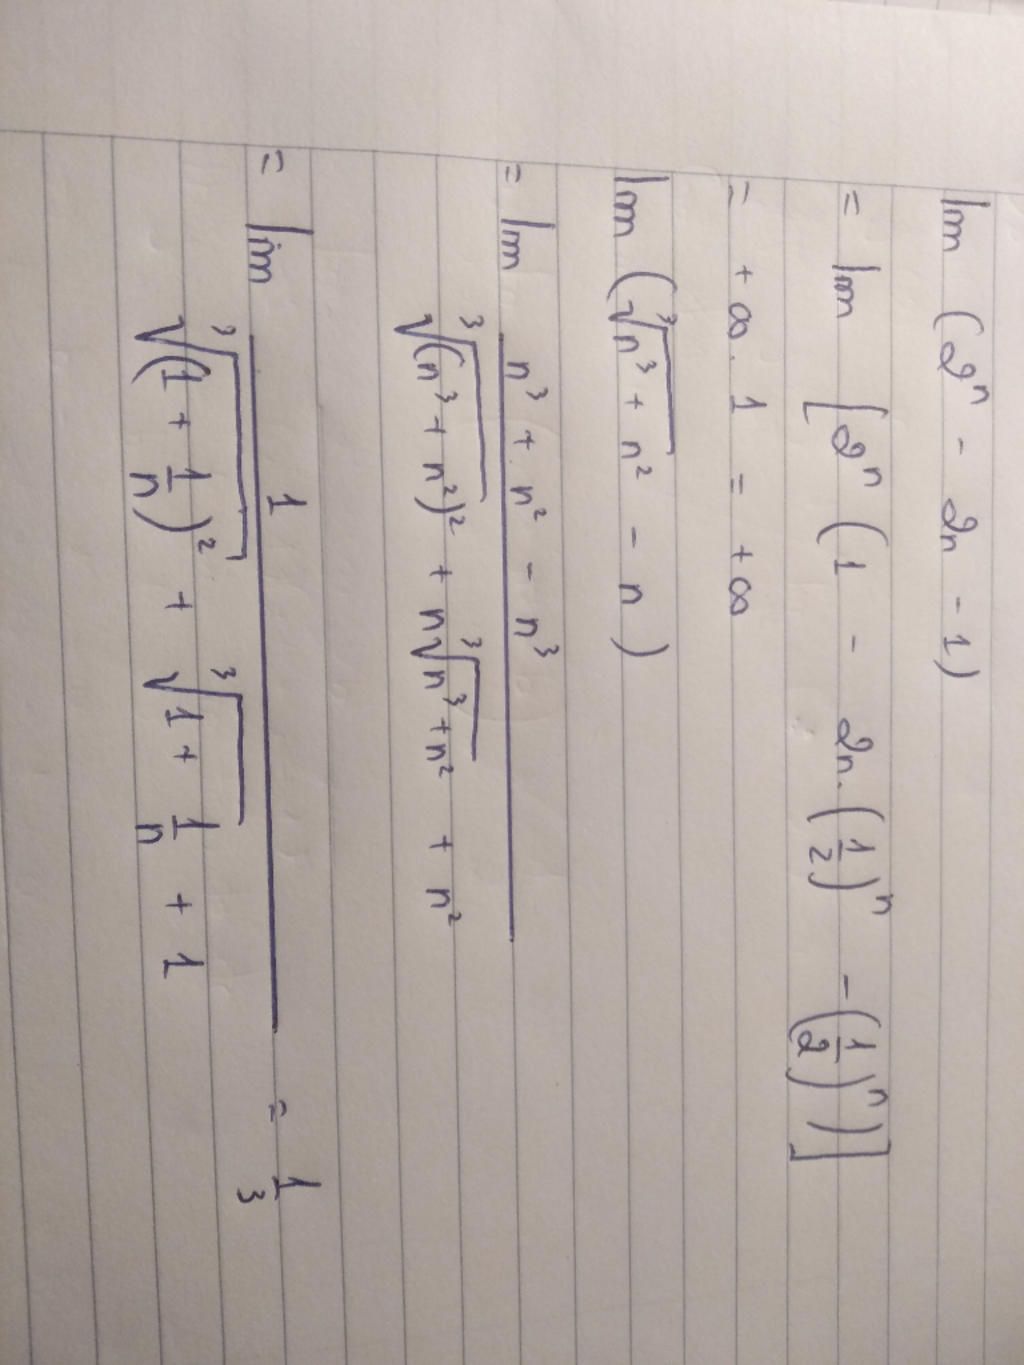 lim (2ⁿ - 2n - 1)
= lim [2ⁿ (1 - 2n.(1/2)ⁿ - (1/2)ⁿ)]
= +∞. 1 = +∞
lim (∛(n³ + n²) - n)
= lim (n³ + n² - n³) / (∛((n³ + n²)²) + n∛(n³ + n²) + n²)
= lim 1 / (∛((1 + 1/n)²) + ∛(1 + 1/n) + 1) = 1/3